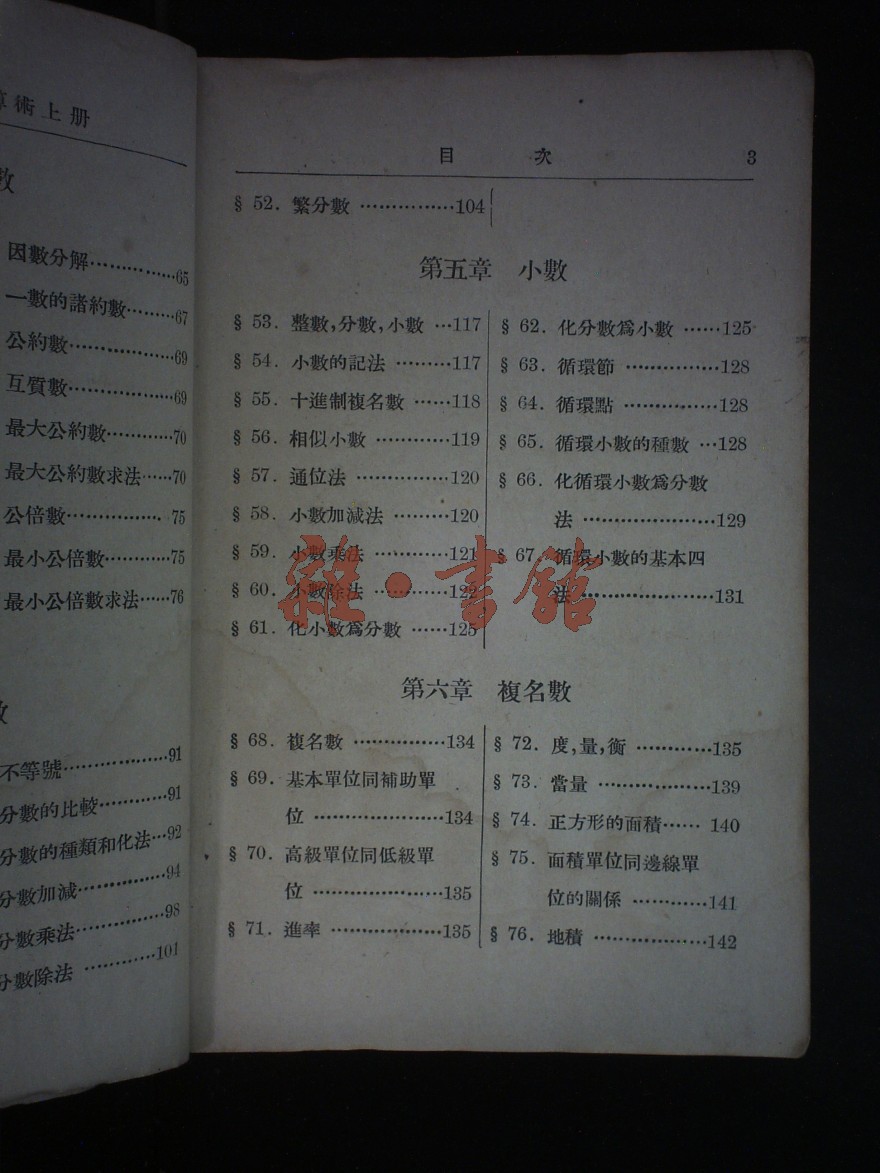 術上册
數
因數分解……………65
一數的諸約數………67
公約數………………69
互質數………………69
最大公約數…………70
最大公約數求法……70
公倍數……………… 75
最小公倍數…………75
最小公倍數求法……76
不等號………………91
分數的比較…………91
分數的種類和化法…92
分數加減……………94
分數乘法……………98
分數除法 …………101
目 次 3
§ 52. 繁分數 ……………104
第五章 小數
§ 53. 整數,分數,小數 …117
§ 54. 小數的記法 ………117
§ 55. 十進制複名數 ……118
§ 56. 相似小數 …………119
§ 57. 通位法 ……………120
§ 58. 小數加減法 ………120
§ 59. 小數乘法 …………121
§ 60. 小數除法 …………122
§ 61. 化小數爲分數 ……125
§ 62. 化分數爲小數 ……125
§ 63. 循環節 ……………128
§ 64. 循環點 ……………128
§ 65. 循環小數的種數 …128
§ 66. 化循環小數爲分數
法 …………………129
§ 67. 循環小數的基本四
法 …………………131
雜·書館
第六章 複名數
§ 68. 複名數 ……………134
§ 69. 基本單位同補助單
位 …………………134
§ 70. 高級單位同低級單
位 …………………135
§ 71. 進率 ………………135
§ 72. 度,量,衡 …………135
§ 73. 當量 ………………139
§ 74. 正方形的面積…… 140
§ 75. 面積單位同邊線單
位的關係 …………141
§ 76. 地積 ………………142